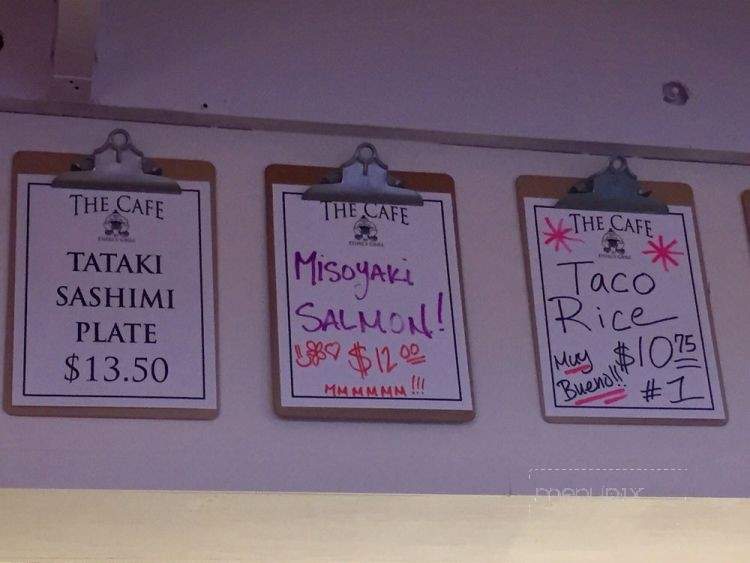 THE CAFE
TATAKI
SASHIMI
PLATE
$13.50
THE CAFE
MISOYAKI
SALMON!
$12.00
MMMMMM!!!
THE CAFE
TACO
RICE
MUY
BUENO!!
$10.75
#1
menupix